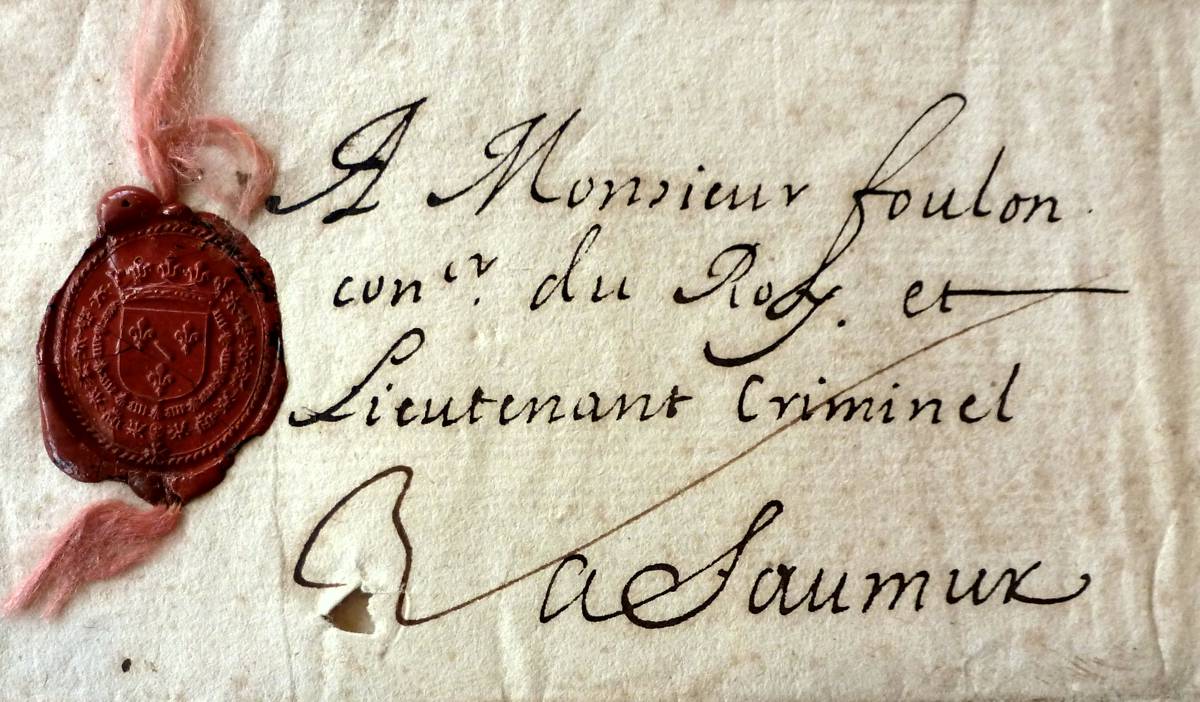 A Monsieur foulon
con^er. du Roy. et
Lieutenant Criminel
a Saumur